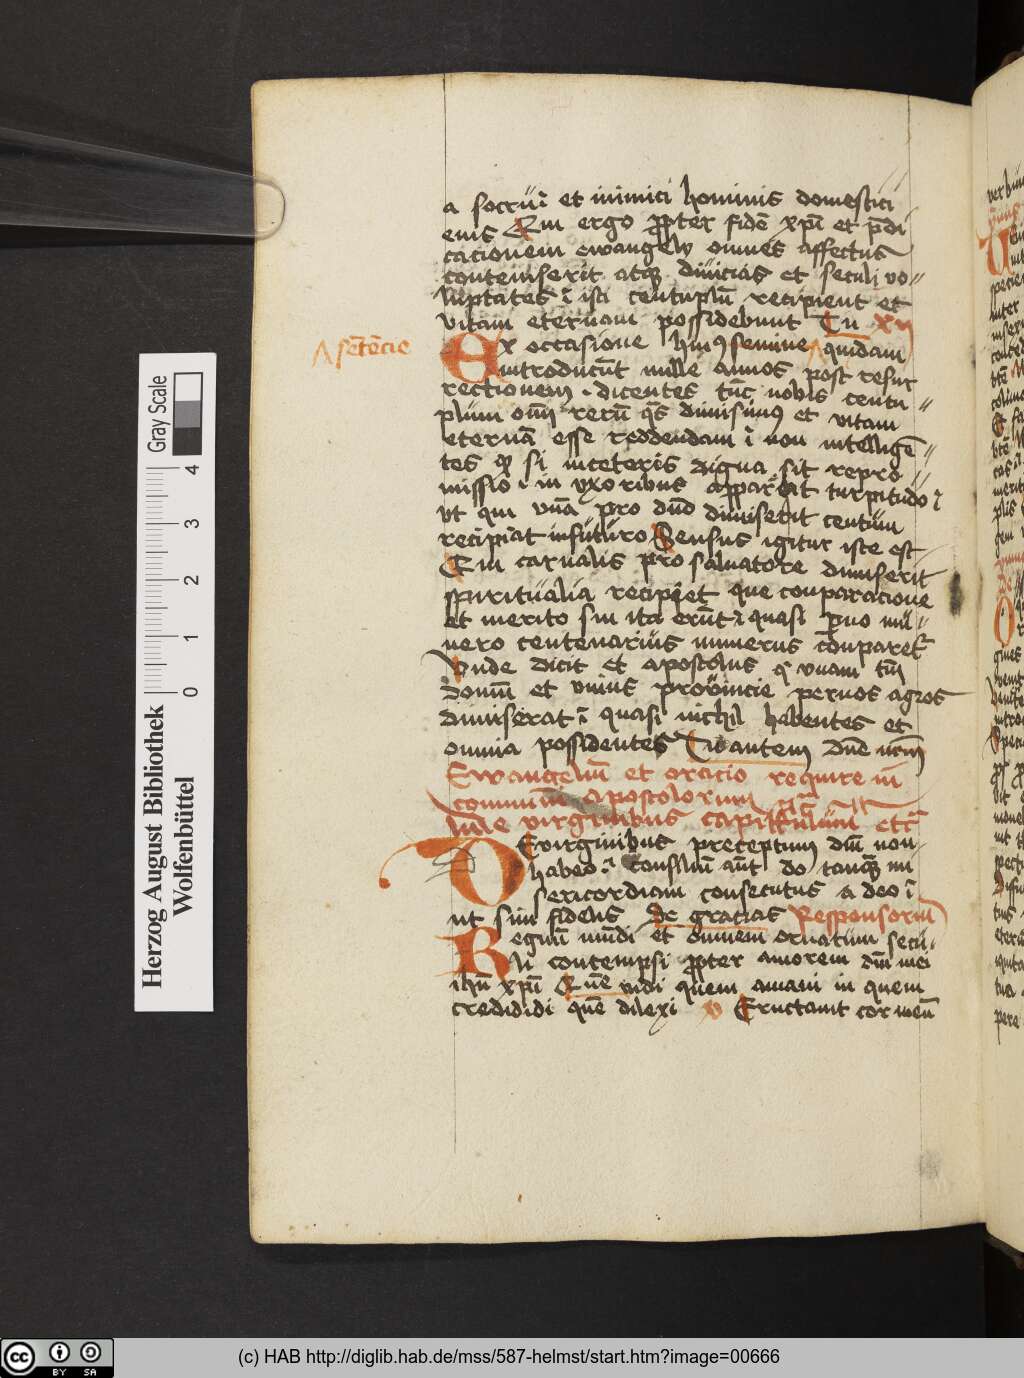 a socru ī et inimici hominis domestici
eius Qui ergo ꝓpter fidē xpī et p̄di
cacionem ewangely omnes affectus
contemserit atqꝫ diuicias et seculi vo
luptates ī isti centuplū recipient et
vitam eternam possidebunt Tu
Ex occasione huiꝰ semine quidam
sētēcie
introducūt mille annos post resur
rectionem dicentes tūc nobis centu
plum oīm rerū qās dimisimꝰ et vitam
eternā esse reddendam ī non intelligē
tes ꝙ si in ceteris digna sit repro
missio in vxoribus appareat turpitudo
vt qui vnā pro dn̄o dimiserit centum
recipiat in futuro Sensus igitur iste est
Qui carnalis pro saluatore dimiserit
spiritualia recipiet que conparacione
et merito sui ita erūt quasi paruo nu
mero centenarius numerus cōnparetᷣ
Vnde dicit et apostolus qꝛ vnam tm̄
domū et vnius prouincie paruos agros
dimiserat ī quasi nichil habentes et
omnia possidentes Tu autem dn̄e
Ewangeliū et oracio require in
communi apostolorum
virginibus capitulum etc
De virginibus preceptum dn̄i non
habeo consiliū aūt do tanqꝫ mi
sericordiam consecutus a deo ī
ut sim fidelis De gracias Responsoriū
Regnū mūdi et omnem ornatum secu
li contempsi ꝓpter amorem dn̄i mei
ihū xp̄i Quē vidi quem amaui in quem
credididi quē dilexi v Eructauit cor meū
Gray Scale
0 1 2 3 4
Herzog August Bibliothek
Wolfenbüttel
cc BY SA
(c) HAB http://diglib.hab.de/mss/587-helmst/start.htm?image=00666